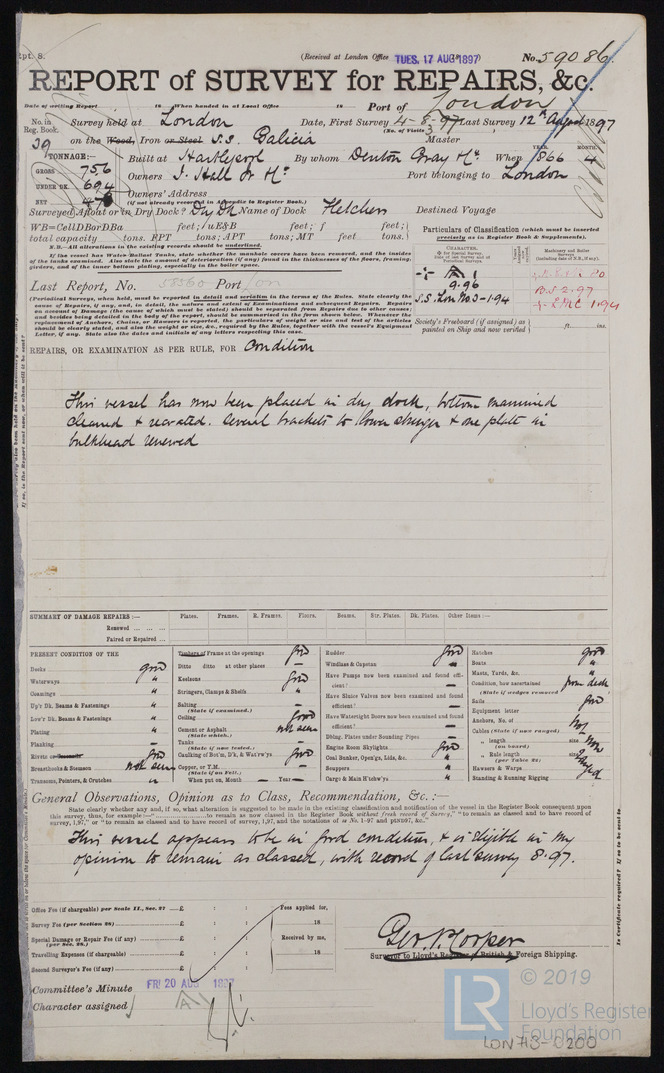 Rpt. 8.
(Received at London Office TUES. 17 AUG 1897)
No. 59086
REPORT of SURVEY for REPAIRS, &c.
Date of writing Report 18 When handed in at Local Office 18 Port of London
No. in Reg. Book. Survey held at London Date, First Survey 4-8-97 Last Survey 12th August 1897
(No. of Visits 3)
29 on the Wood, Iron or Steel S.S. Galicia Master
TONNAGE:—
GROSS 756
UNDER DK. 694
NET
Built at Hartlepool By whom Denton Gray & Co. When 1866 MONTH. 4
YEAR.
Owners J. Hall Jr & Co. Port belonging to London
Owners' Address
(if not already recorded in Appendix to Register Book.)
Surveyed Afloat or in Dry Dock? Dry Dk Name of Dock Fletchers Destined Voyage
WB=CellDBorDBa feet; uE&B feet; f feet;
total capacity tons. FPT tons; APT tons; MT feet tons.
N.B.—All alterations in the existing records should be underlined.
If the vessel has Water-Ballast Tanks, state whether the manhole covers have been removed, and the insides of the tanks examined. Also state the amount of deterioration (if any) found in the thicknesses of the floors, framing, girders, and of the inner bottom plating, especially in the boiler space.
Particulars of Classification (which must be inserted precisely as in Register Book & Supplements).
CHARACTER.
A 1
9.96
S.S. Lon No 3-1-94
B.S 2.97
+ LMC 1.94
Last Report, No. 58560 Port Lon
(Periodical Surveys, when held, must be reported in detail and seriatim in the terms of the Rules. State clearly the cause of Repairs, if any, and, in detail, the nature and extent of Examinations and subsequent Repairs. Repairs on account of Damage (the cause of which must be stated) should be separated from Repairs due to other causes; and besides being detailed in the body of the report, should be summarised in the form shown below. Whenever the replacement of Anchors, Chains, or Hawsers is reported, the particulars of weight or size and test of the articles should be clearly stated, and also the weight or size, &c., required by the Rules, together with the vessel's Equipment Letter, if any. State also the dates and initials of any letters respecting this case.
Society's Freeboard (if assigned) as painted on Ship and now verified ft. ins.
REPAIRS, OR EXAMINATION AS PER RULE, FOR Condition
This vessel has now been placed in dry dock, bottom examined
cleaned & recoated. Several brackets to lower stringer & one plate in
bulkhead renewed
SUMMARY OF DAMAGE REPAIRS:— Plates. Frames. R. Frames. Floors. Beams. Str. Plates. Dk. Plates. Other Items:—
Renewed ... ...
Faired or Repaired ...
PRESENT CONDITION OF THE
Decks good
Waterways "
Coamings "
Up'r Dk. Beams & Fastenings "
Low'r Dk. Beams & Fastenings "
Plating "
Planking —
Rivets good
Breasthooks & Stemson not seen
Transoms, Pointers, & Crutches "
Timbers of Frame at the openings good
Ditto ditto at other places —
Keelsons good
Stringers, Clamps & Shelfs "
Salting —
(State if examined.)
Ceiling good
Cement or Asphalt not seen
(State which.)
Tanks —
(State if now tested.)
Caulking of Bot'm, D'k, & Wat'rw'ys good
Copper, or Y.M. —
(State if on Felt.)
When put on, Month — Year —
Rudder good
Windlass & Capstan "
Have Pumps now been examined and found efficient? —
Have Sluice Valves now been examined and found efficient? —
Have Watertight Doors now been examined and found efficient? —
Dblng. Plates under Sounding Pipes —
Engine Room Skylights good
Coal Bunker, Open'gs, Lids, &c. "
Scuppers "
Cargo & Main H'chw'ys "
Hatches good
Boats "
Masts, Yards, &c. "
Condition, how ascertained from deck
(State if wedges removed)
Sails good
Equipment letter
Anchors, No. of
Cables (State if now ranged)
" length size
(on board)
" Rule length size
(per Table 22)
Hawsers & Warps
Standing & Running Rigging
General Observations, Opinion as to Class, Recommendation, &c.:—
State clearly whether any, and if so, what alteration is suggested to be made in the existing classification and notification of the vessel in the Register Book consequent upon this survey, thus, for example:—"to remain as now classed in Register Book without fresh record of Survey," "to remain as classed and to have record of survey, 1,97," or "to remain as classed and to have record of survey, 1,97, and the notations of
This vessel appears to be in good condition, & is eligible in my
opinion to remain as classed, with record of last survey 8.97.
Office Fee (if chargeable) per Scale II., Sec. 27 £ : :
Survey Fee (per Section 28) £ : :
Special Damage or Repair Fee (if any) £ : :
(per Sec. 28.)
Travelling Expenses (if chargeable) £ : :
Second Surveyor's Fee (if any) £ : :
Fees applied for,
18
Received by me,
18
Surveyor to Lloyd's Register of British & Foreign Shipping.
Committee's Minute FRI 20 AUG 1897
Character assigned A1
© 2019
LR
Lloyd's Register
Foundation
LON 713-0200
Is Certificate required? If so to be sent to